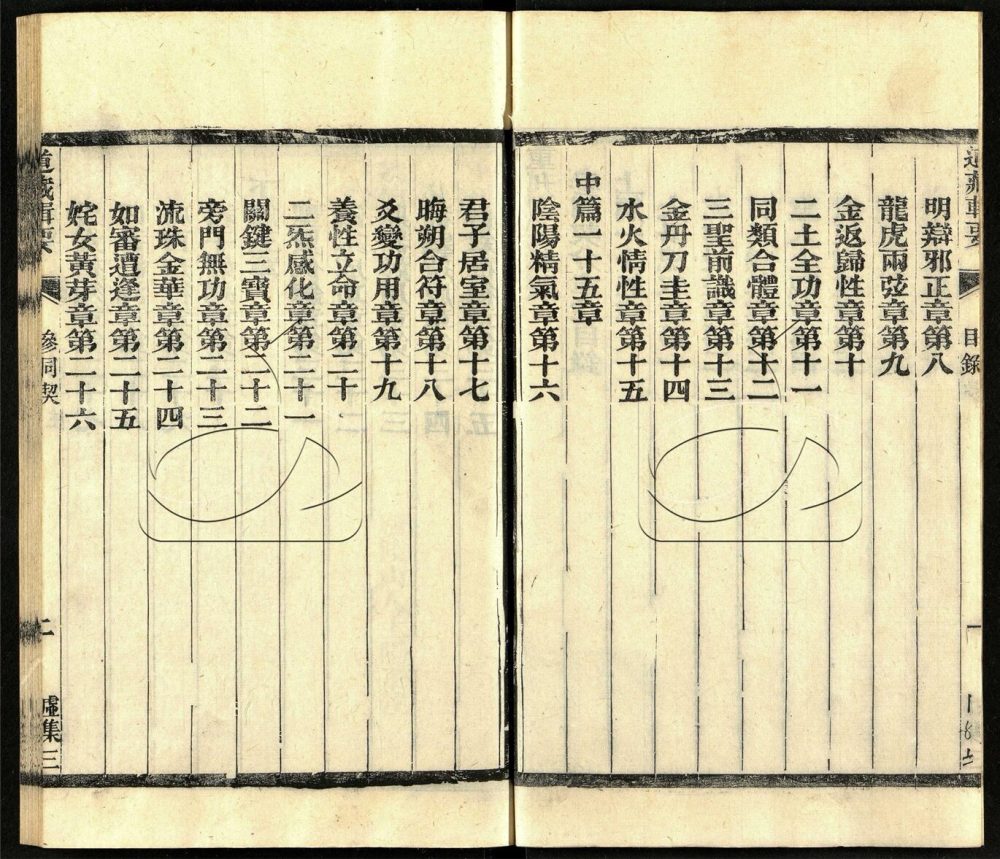 道藏輯要 目錄 一
明辯邪正章第八
龍虎兩弦章第九
金返歸性章第十
二土全功章第十一
同類合體章第十二
三聖前識章第十三
金丹刀圭章第十四
水火情性章第十五
中篇一十五章
陰陽精氣章第十六
君子居室章第十七
晦朔合符章第十八
爻變功用章第十九
養性立命章第二十
二炁感化章第二十一
關鍵三寶章第二十二
旁門無功章第二十三
流珠金華章第二十四
如審遭逢章第二十五
姹女黃芽章第二十六
道藏輯要 參同契 二 虛集三